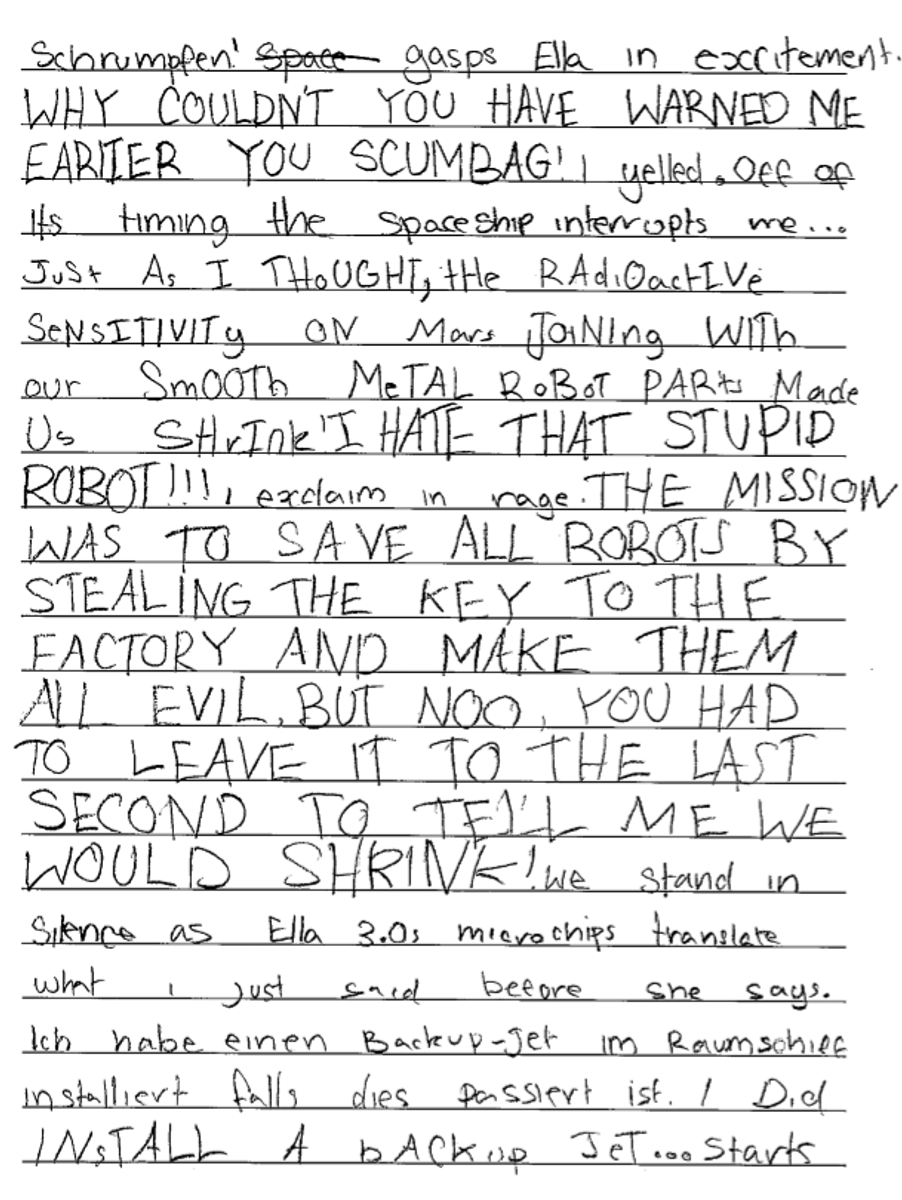 Schrumpfen! Space gasps Ella in excitement.
WHY COULDN'T YOU HAVE WARNED ME
EARIIER YOU SCUMBAG! I yelled. Off of
Its timing the spaceship interrupts me...
Just As I THoUGHT, tHe RAdiOactIVe
SeNSITIVITy ON Mars JOiNINg WITh
our SmOOTh MeTAL RoBoT PARts Made
Us SHrInk! I HATE THAT STUPID
ROBOT!!! I exclaim in rage. THE MISSION
WAS TO SAVE ALL ROBOTS BY
STEALING THE KEY TO THE
FACTORY AND MAKE THEM
ALL EVIL, BUT NOO, YOU HAD
TO LEAVE IT TO THE LAST
SECOND TO TELL ME WE
WOULD SHRINK! we stand in
Silence as Ella 3.0s microchips translate
what i just said before she says.
Ich habe einen Backup-Jet im Raumschiff
installiert falls dies passiert ist. I Did
INsTALL A bACKup JeT... Starts